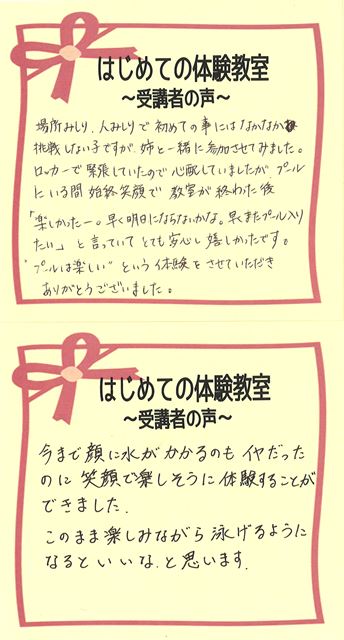 はじめての体験教室
～受講者の声～
場所みしり、人みしりで初めての事にはなかなか
挑戦しない子ですが、姉と一緒に参加させてみました。
ロッカーで緊張していたので心配していましたが、プール
にいる間始終笑顔で教室が終わった後
「楽しかったー。早く明日にならないかな。早くまたプール入り
たい」と言っていてとても安心し嬉しかったです。
"プールは楽しい"という体験をさせていただき
ありがとうございました。
はじめての体験教室
～受講者の声～
今まで顔に水がかかるのもイヤだった
のに笑顔で楽しそうに体験することが
できました.
このまま楽しみながら泳げるように
なるといいな.と思います.